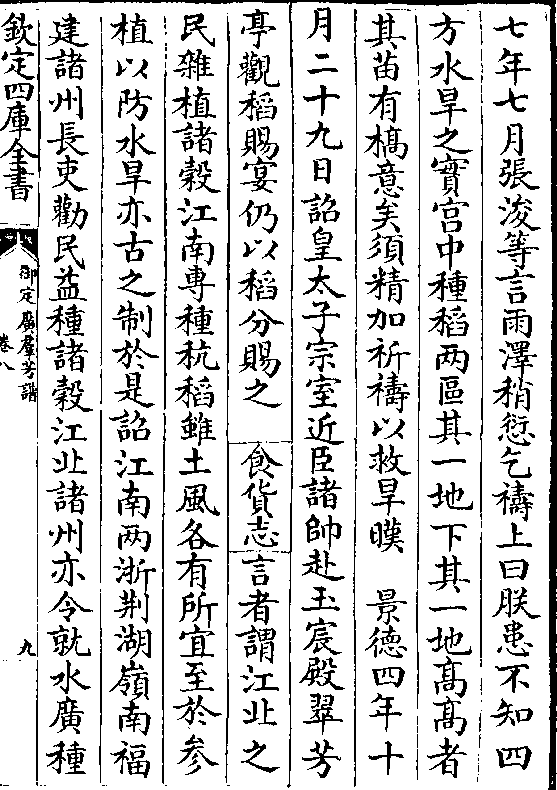 七年七月張浚等言雨澤稍愆乞禱上曰朕患不知四
方水旱之實宫中種稻两區其一地下其一地髙髙者
其苗有槁意矣須精加祈禱以救旱暵　景德四年十
月二十九日詔皇太子宗室近臣諸帥赴玉宸殿翠芳
亭觀稻賜宴仍以稻分賜之　食貨志　言者謂江北之
民雜植諸榖江南専種秔稻雖土風各有所宜至於參
植以防水旱亦古之制於是詔江南两浙荆湖嶺南福
建諸州長吏勸民益種諸榖江北諸州亦令就水廣種
欽定四庫全書
御定廣羣芳譜
卷八
九